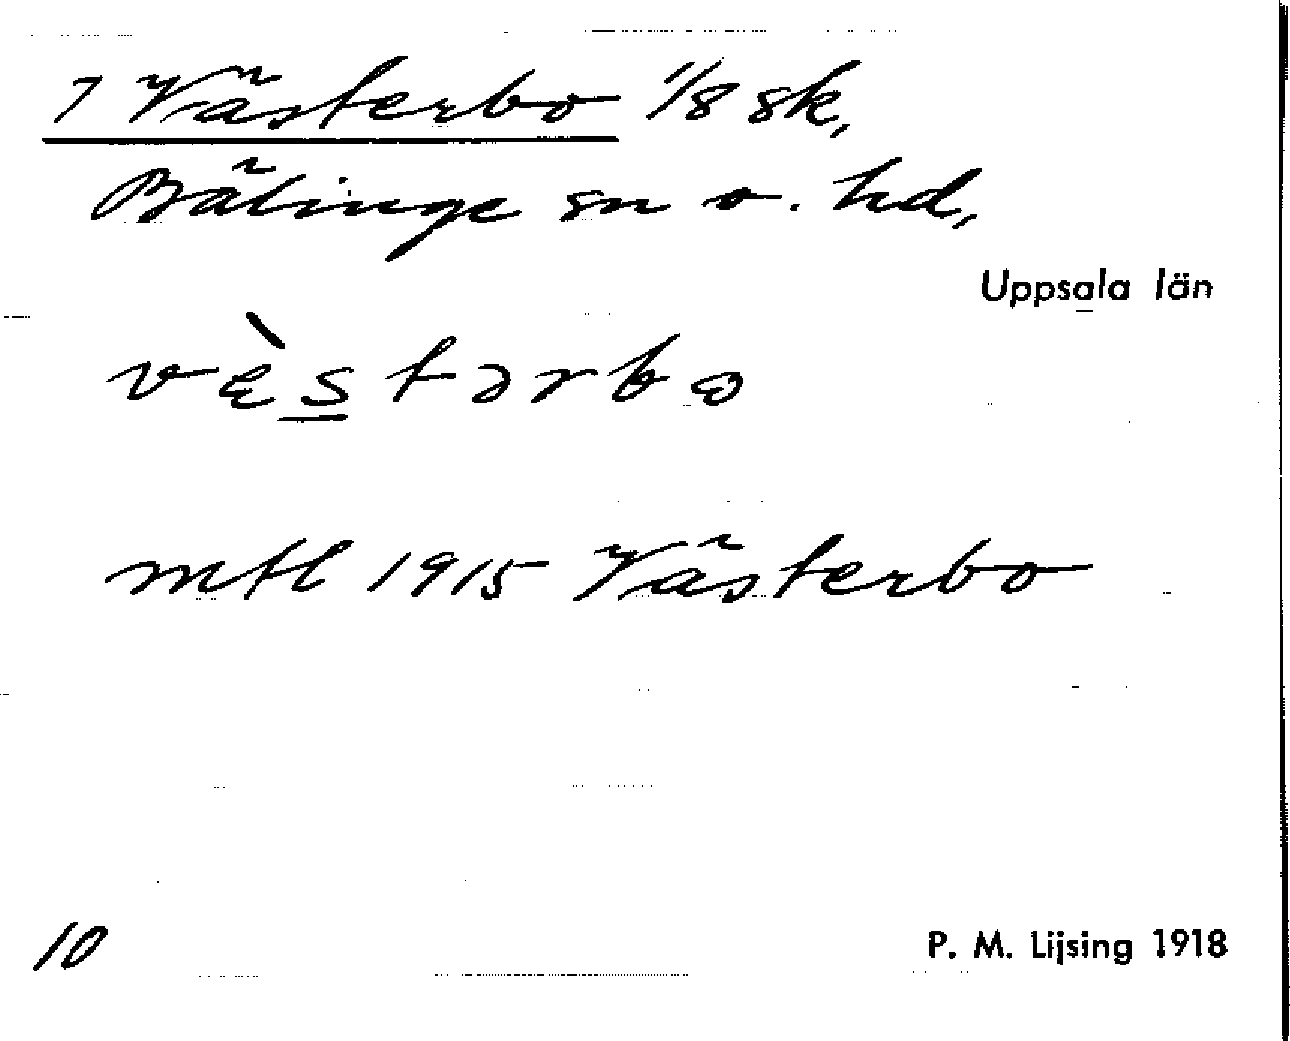 7 Västerbo 1/8 sk,
Bälinge sn o. hd,
Uppsala län
vɛ̀stərbo
mtl 1915 Västerbo
10
P. M. Lijsing 1918